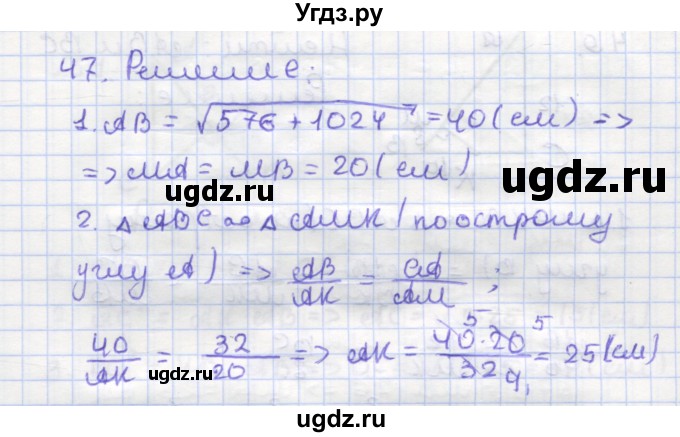 Угдз.ру
47. Решение:
1. AB = √576 + 1024 = 40 (см) =>
=> MA = MB = 20 (см)
ugdz.ru ugdz.ru
2. △ ABC ∞ △ AMK (по острому
углу A) => AB/AK = CA/AM ;
40/AK = 32/20 => AK = 40·20/32 = 25 (см)
5 5 4
ugdz.ru ugdz.ru
ugdz.ru